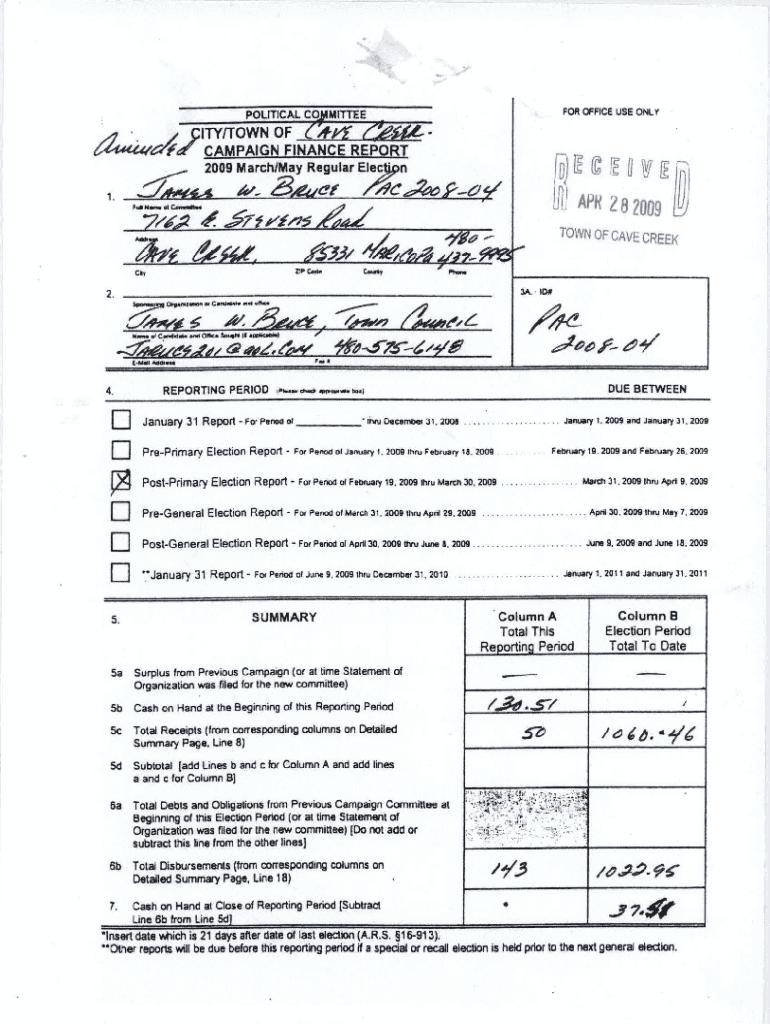 POLITICAL COMMITTEE
CITY/TOWN OF CAVE CREEK.
Amended CAMPAIGN FINANCE REPORT
2009 March/May Regular Election
FOR OFFICE USE ONLY
RECEIVED
APR 28 2009
TOWN OF CAVE CREEK
1. JAMES W. BRUCE PAC 2008-04
Full Name of Committee
7162 E. STEVENS Road
Address
CAVE CREEK, 85331 MARICOPA 480-437-9995
City ZIP Code County Phone
2.
Sponsoring Organization or Candidate and office
JAMES W. BRUCE, TOWN COUNCIL
Name of Candidate and Office Sought (if applicable)
JABRUCE201@aol.com 480-575-6148
E-Mail Address Fax #
3A. ID#
PAC
2008-04
4. REPORTING PERIOD (Please check appropriate box) DUE BETWEEN
January 31 Report - For Period of * thru December 31, 2008 January 1, 2009 and January 31, 2009
Pre-Primary Election Report - For Period of January 1, 2009 thru February 18, 2009 February 19, 2009 and February 26, 2009
X Post-Primary Election Report - For Period of February 19, 2009 thru March 30, 2009 March 31, 2009 thru April 9, 2009
Pre-General Election Report - For Period of March 31, 2009 thru April 29, 2009 April 30, 2009 thru May 7, 2009
Post-General Election Report - For Period of April 30, 2009 thru June 8, 2009 June 9, 2009 and June 18, 2009
**January 31 Report - For Period of June 9, 2009 thru December 31, 2010 January 1, 2011 and January 31, 2011
5. SUMMARY
Column A
Total This
Reporting Period
Column B
Election Period
Total To Date
5a Surplus from Previous Campaign (or at time Statement of
Organization was filed for the new committee) — —
5b Cash on Hand at the Beginning of this Reporting Period 130.51
5c Total Receipts (from corresponding columns on Detailed
Summary Page, Line 8) 50 1060.46
5d Subtotal [add Lines b and c for Column A and add lines
a and c for Column B]
6a Total Debts and Obligations from Previous Campaign Committee at
Beginning of this Election Period (or at time Statement of
Organization was filed for the new committee) [Do not add or
subtract this line from the other lines]
6b Total Disbursements (from corresponding columns on
Detailed Summary Page, Line 18) 143 1022.95
7. Cash on Hand at Close of Reporting Period [Subtract
Line 6b from Line 5d] 37.51
*Insert date which is 21 days after date of last election (A.R.S. §16-913).
**Other reports will be due before this reporting period if a special or recall election is held prior to the next general election.